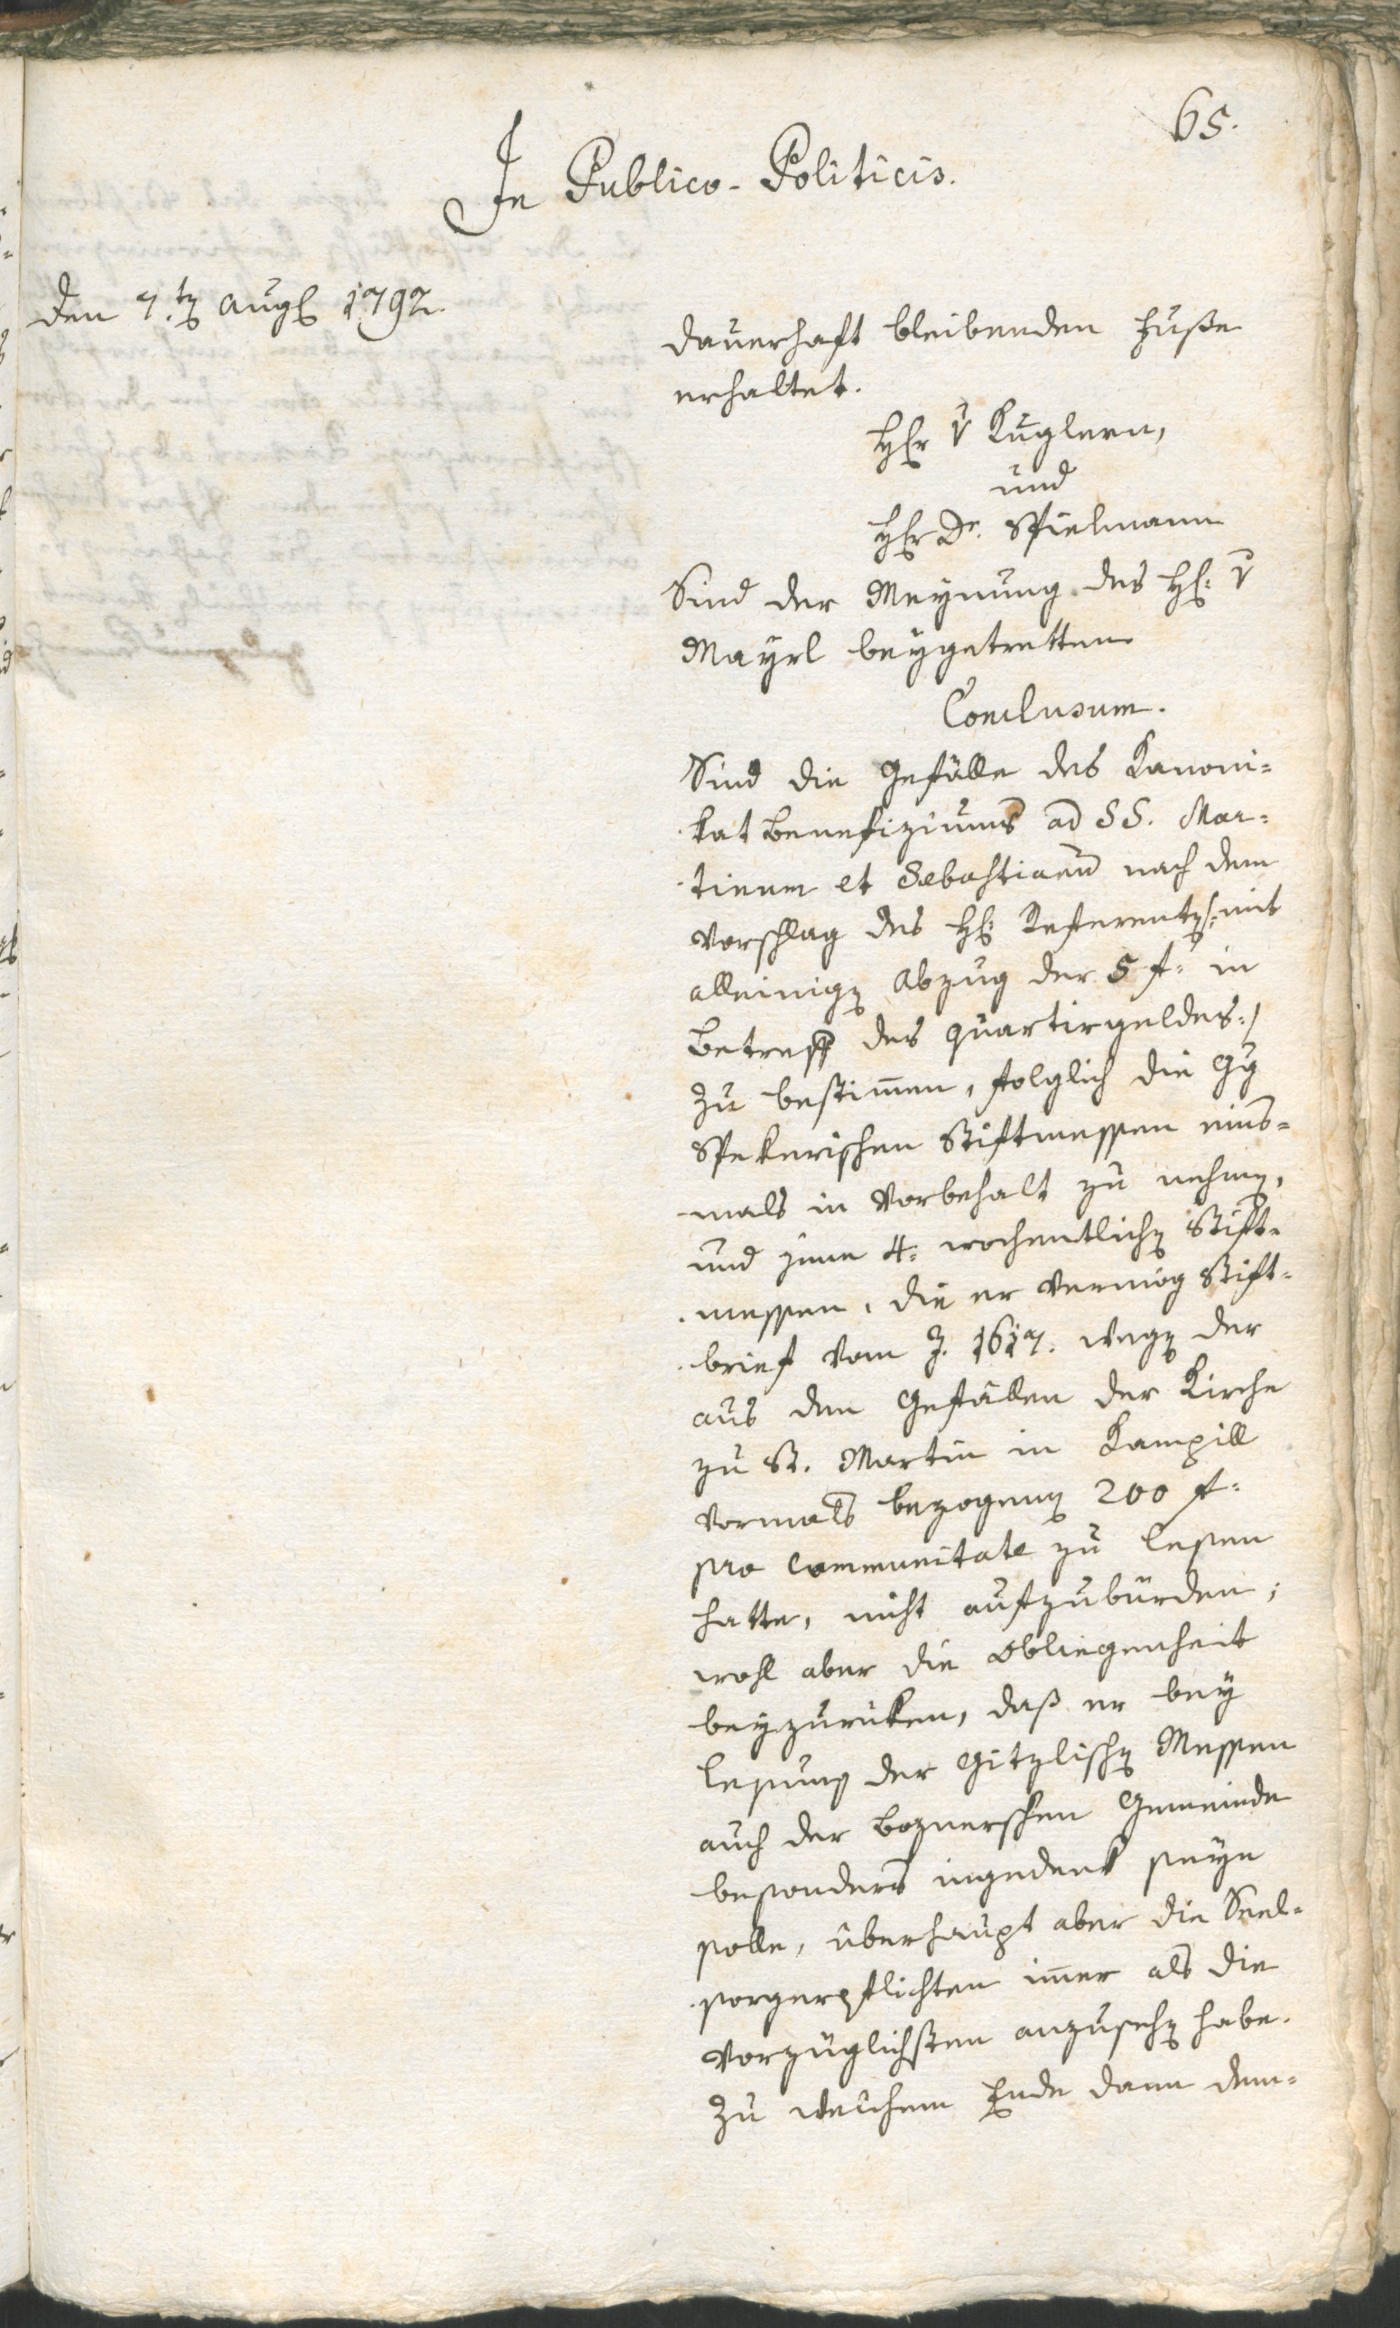 65.
In Publico-Politicis.
Den 7.ten Augs 1792.
dauerhaft bleibenden Fuße
erhaltet.
HEr v Kuglern,
und
HEr Dr. Spielmann
Sind der Meynung des H: v
Mayrl beygetretten
Conclusum.
Sind die Gefälle des Kanoni-
kat Benefiziums ad SS. Mar-
tinum et Sebastianum nach dem
Vorschlag des H: Referenten /:mit
alleinigen Abzug der 5 f: in
Betreff des Quartirgeldes:/
zu bestimmen, folglich die Gg
Spekerischen Stiftmessen eins-
mals in Vorbehalt zu nehmen,
und jene 4. wochentlichen Stift-
messen, die er vermög Stift-
brief vom J. 1617. wegen der
aus den Gefällen der Kirche
zu St. Martin in Kampill
vormals bezogenen 200 f:
pro Communitate zu lesen
hatte, nicht aufzubürden;
wohl aber die Obliegenheit
beyzurüken, daß er bey
Lesung der Gitzlischen Messen
auch der Boznerschen Gemeinde
besonders ingedenk seyn
solle, überhaupt aber die Seel-
sorgerpflichten immer als die
vorzüglichsten anzusehen habe.
Zu welchem Ende dann dem-